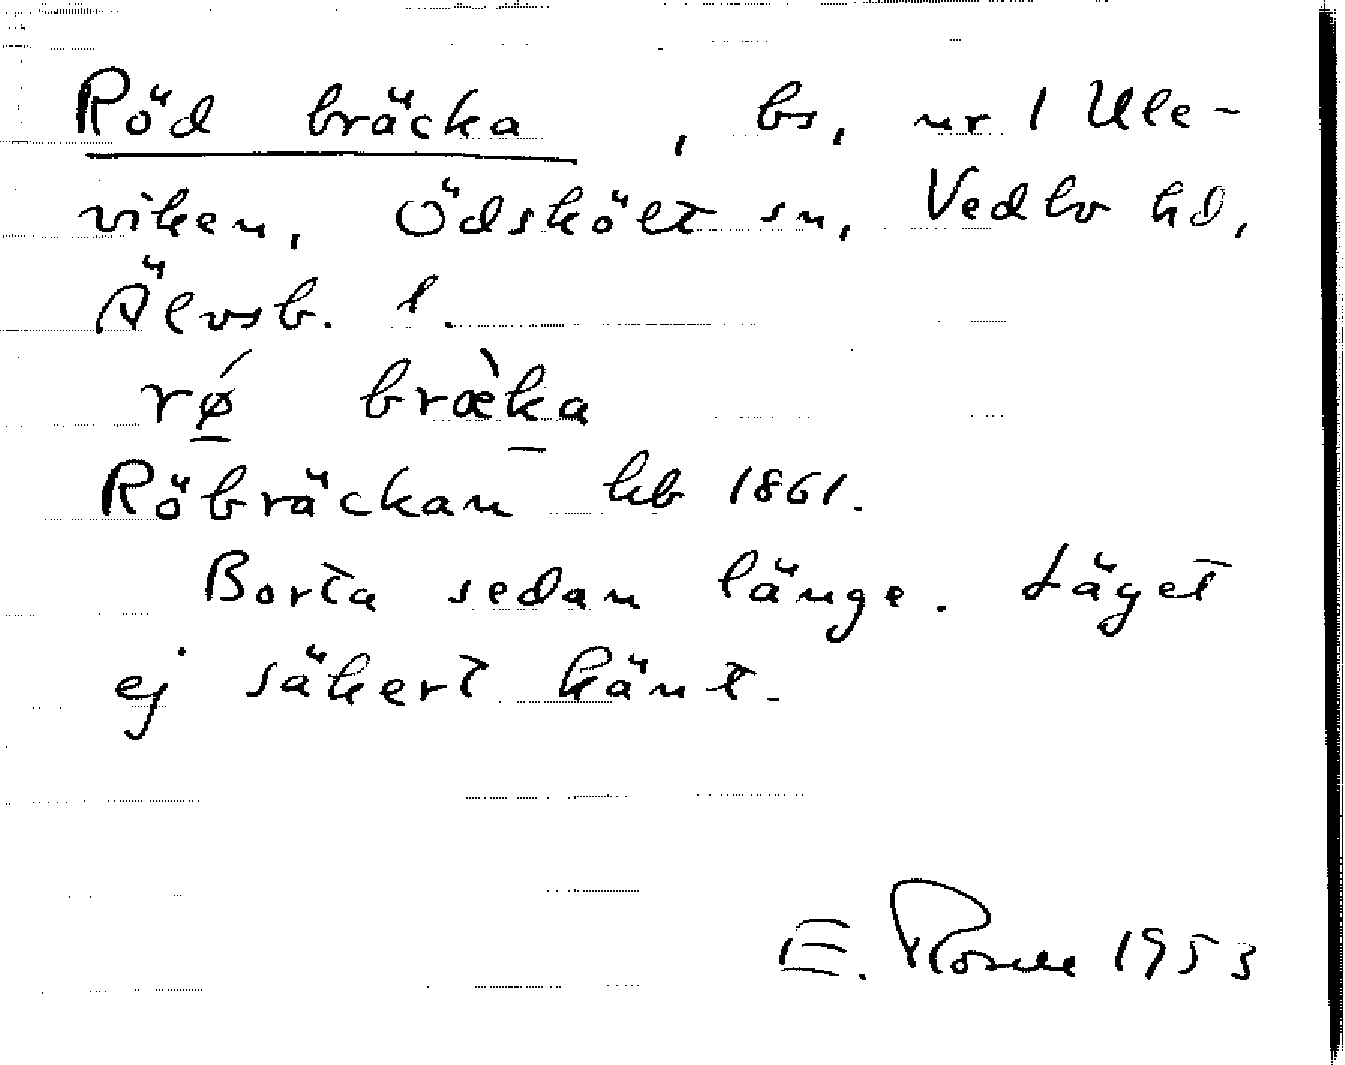 Röd bräcka, bs, nr 1 Ule-
viken, Ödskölt sn, Vedbo hd,
Älvsb. l.
rǿ bræ̀ka
Röbräckan hb 1861.
Borta sedan länge. Läget
ej säkert känt.
E. Rosell 1953